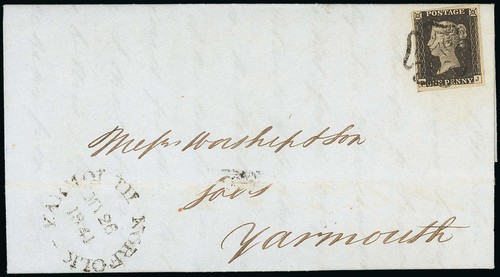 POSTAGE
ONE PENNY
J
Messrs Worship & Son
Yarmouth
YARMOUTH NORFOLK
26
1841